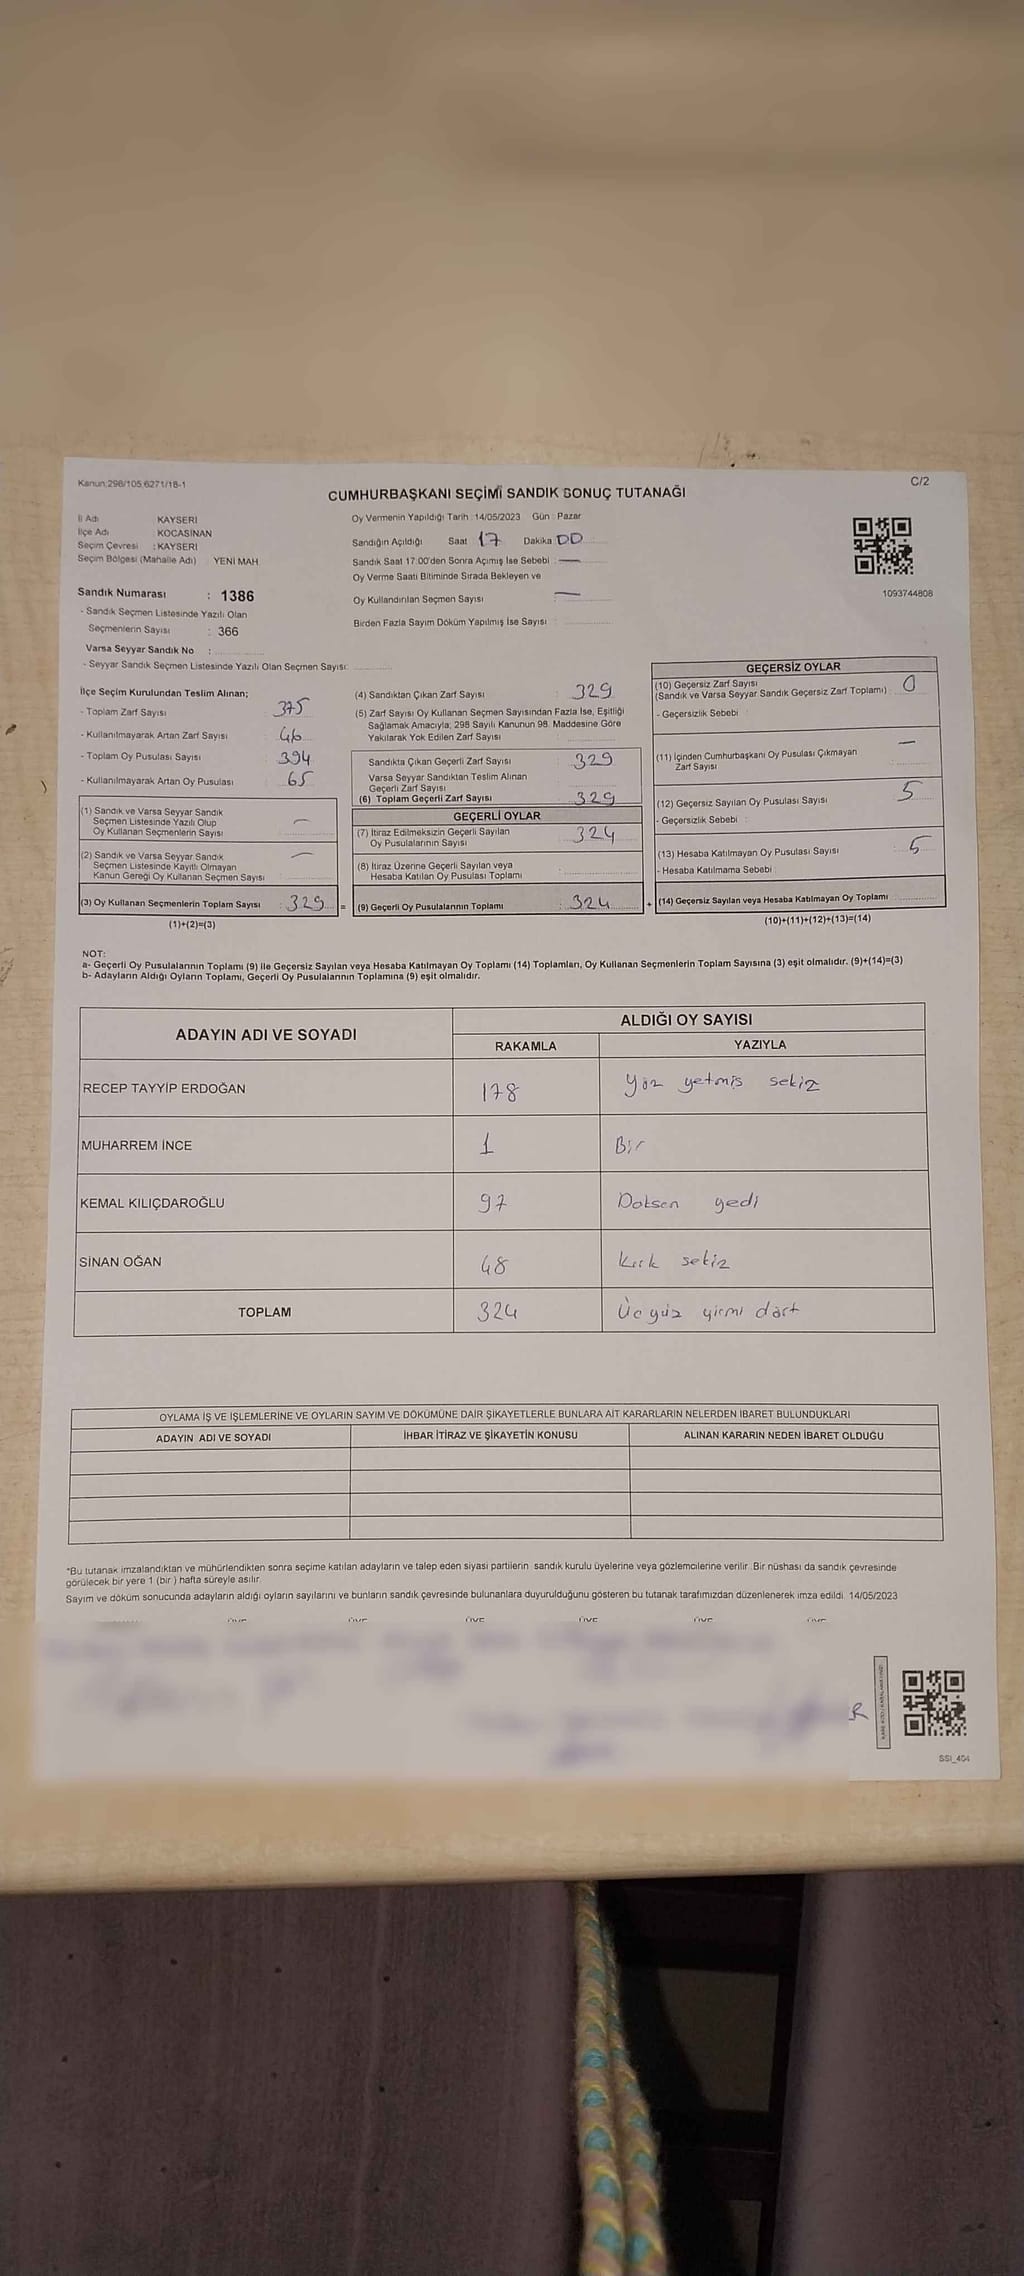 Kanun:298/105,6271/18-1
C/2
CUMHURBAŞKANI SEÇİMİ SANDIK SONUÇ TUTANAĞI
İl Adı KAYSERİ
İlçe Adı KOCASİNAN
Seçim Çevresi : KAYSERİ
Seçim Bölgesi (Mahalle Adı) YENİ MAH
Sandık Numarası : 1386
- Sandık Seçmen Listesinde Yazılı Olan
Seçmenlerin Sayısı : 366
Varsa Seyyar Sandık No :
- Seyyar Sandık Seçmen Listesinde Yazılı Olan Seçmen Sayısı:
Oy Vermenin Yapıldığı Tarih : 14/05/2023 Gün : Pazar
Sandığın Açıldığı Saat 17 Dakika 00
Sandık Saat 17:00'den Sonra Açımış İse Sebebi : —
Oy Verme Saati Bitiminde Sırada Bekleyen ve
Oy Kullandırılan Seçmen Sayısı : —
Birden Fazla Sayım Döküm Yapılmış İse Sayısı :
1093744808
İlçe Seçim Kurulundan Teslim Alınan;
- Toplam Zarf Sayısı : 375
- Kullanılmayarak Artan Zarf Sayısı : 46
- Toplam Oy Pusulası Sayısı : 394
- Kullanılmayarak Artan Oy Pusulası : 65
(1) Sandık ve Varsa Seyyar Sandık
Seçmen Listesinde Yazılı Olup
Oy Kullanan Seçmenlerin Sayısı : —
(2) Sandık ve Varsa Seyyar Sandık
Seçmen Listesinde Kayıtlı Olmayan
Kanun Gereği Oy Kullanan Seçmen Sayısı : —
(3) Oy Kullanan Seçmenlerin Toplam Sayısı : 329 =
(1)+(2)=(3)
(4) Sandıktan Çıkan Zarf Sayısı : 329
(5) Zarf Sayısı Oy Kullanan Seçmen Sayısından Fazla İse, Eşitliği
Sağlamak Amacıyla, 298 Sayılı Kanunun 98. Maddesine Göre
Yakılarak Yok Edilen Zarf Sayısı :
Sandıkta Çıkan Geçerli Zarf Sayısı : 329
Varsa Seyyar Sandıktan Teslim Alınan
Geçerli Zarf Sayısı :
(6) Toplam Geçerli Zarf Sayısı : 329
GEÇERLİ OYLAR
(7) İtiraz Edilmeksizin Geçerli Sayılan
Oy Pusulalarının Sayısı : 324
(8) İtiraz Üzerine Geçerli Sayılan veya
Hesaba Katılan Oy Pusulası Toplamı :
(9) Geçerli Oy Pusulalarının Toplamı : 324 +
GEÇERSİZ OYLAR
(10) Geçersiz Zarf Sayısı
(Sandık ve Varsa Seyyar Sandık Geçersiz Zarf Toplamı) : 0
- Geçersizlik Sebebi :
(11) İçinden Cumhurbaşkanı Oy Pusulası Çıkmayan
Zarf Sayısı : —
(12) Geçersiz Sayılan Oy Pusulası Sayısı : 5
- Geçersizlik Sebebi :
(13) Hesaba Katılmayan Oy Pusulası Sayısı : 5
- Hesaba Katılmama Sebebi :
(14) Geçersiz Sayılan veya Hesaba Katılmayan Oy Toplamı :
(10)+(11)+(12)+(13)=(14)
NOT:
a- Geçerli Oy Pusulalarının Toplamı (9) ile Geçersiz Sayılan veya Hesaba Katılmayan Oy Toplamı (14) Toplamları, Oy Kullanan Seçmenlerin Toplam Sayısına (3) eşit olmalıdır. (9)+(14)=(3)
b- Adayların Aldığı Oyların Toplamı, Geçerli Oy Pusulalarının Toplamına (9) eşit olmalıdır.
ADAYIN ADI VE SOYADI ALDIĞI OY SAYISI
RAKAMLA YAZIYLA
RECEP TAYYİP ERDOĞAN 178 Yüz yetmiş sekiz
MUHARREM İNCE 1 Bir
KEMAL KILIÇDAROĞLU 97 Doksan yedi
SİNAN OĞAN 48 Kırk sekiz
TOPLAM 324 Üç yüz yirmi dört
OYLAMA İŞ VE İŞLEMLERİNE VE OYLARIN SAYIM VE DÖKÜMÜNE DAİR ŞİKAYETLERLE BUNLARA AİT KARARLARIN NELERDEN İBARET BULUNDUKLARI
ADAYIN ADI VE SOYADI İHBAR İTİRAZ VE ŞİKAYETİN KONUSU ALINAN KARARIN NEDEN İBARET OLDUĞU
*Bu tutanak imzalandıktan ve mühürlendikten sonra seçime katılan adayların ve talep eden siyasi partilerin sandık kurulu üyelerine veya gözlemcilerine verilir. Bir nüshası da sandık çevresinde
görülecek bir yere 1 (bir ) hafta süreyle asılır.
Sayım ve döküm sonucunda adayların aldığı oyların sayılarını ve bunların sandık çevresinde bulunanlara duyurulduğunu gösteren bu tutanak tarafımızdan düzenlenerek imza edildi. 14/05/2023
SSI_404